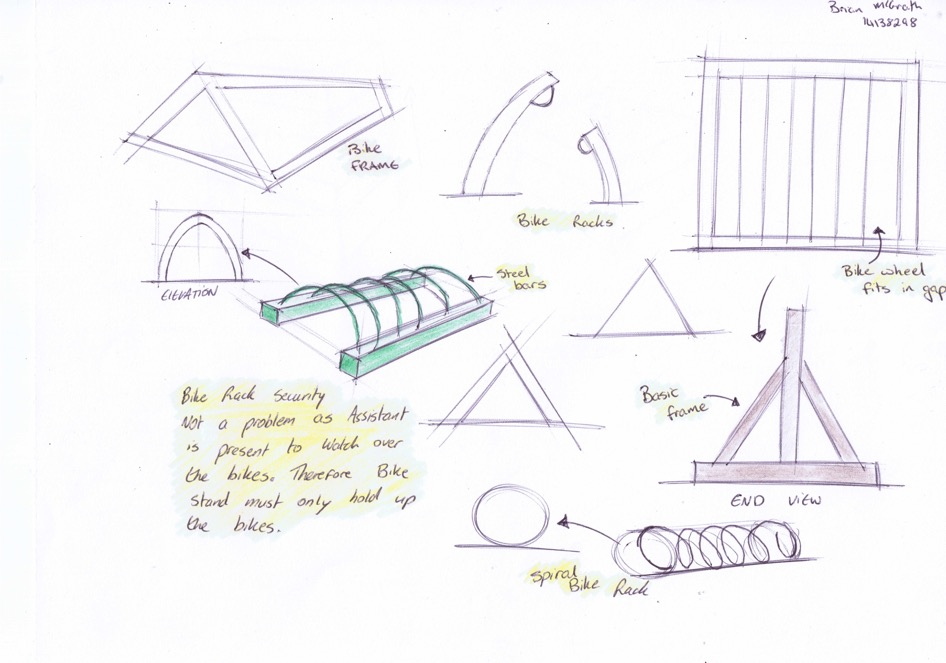 Brian McGrath
14138298
Bike
FRAME
Bike Racks.
Bike wheel
fits in gap
ElEVATiON
Steel
bars
Basic
frame
Bike Rack Security
Not a problem as Assistant
is present to Watch over
the bikes. Therefore Bike
Stand must only hold up
the bikes.
END VIEW
Spiral
Bike Rack